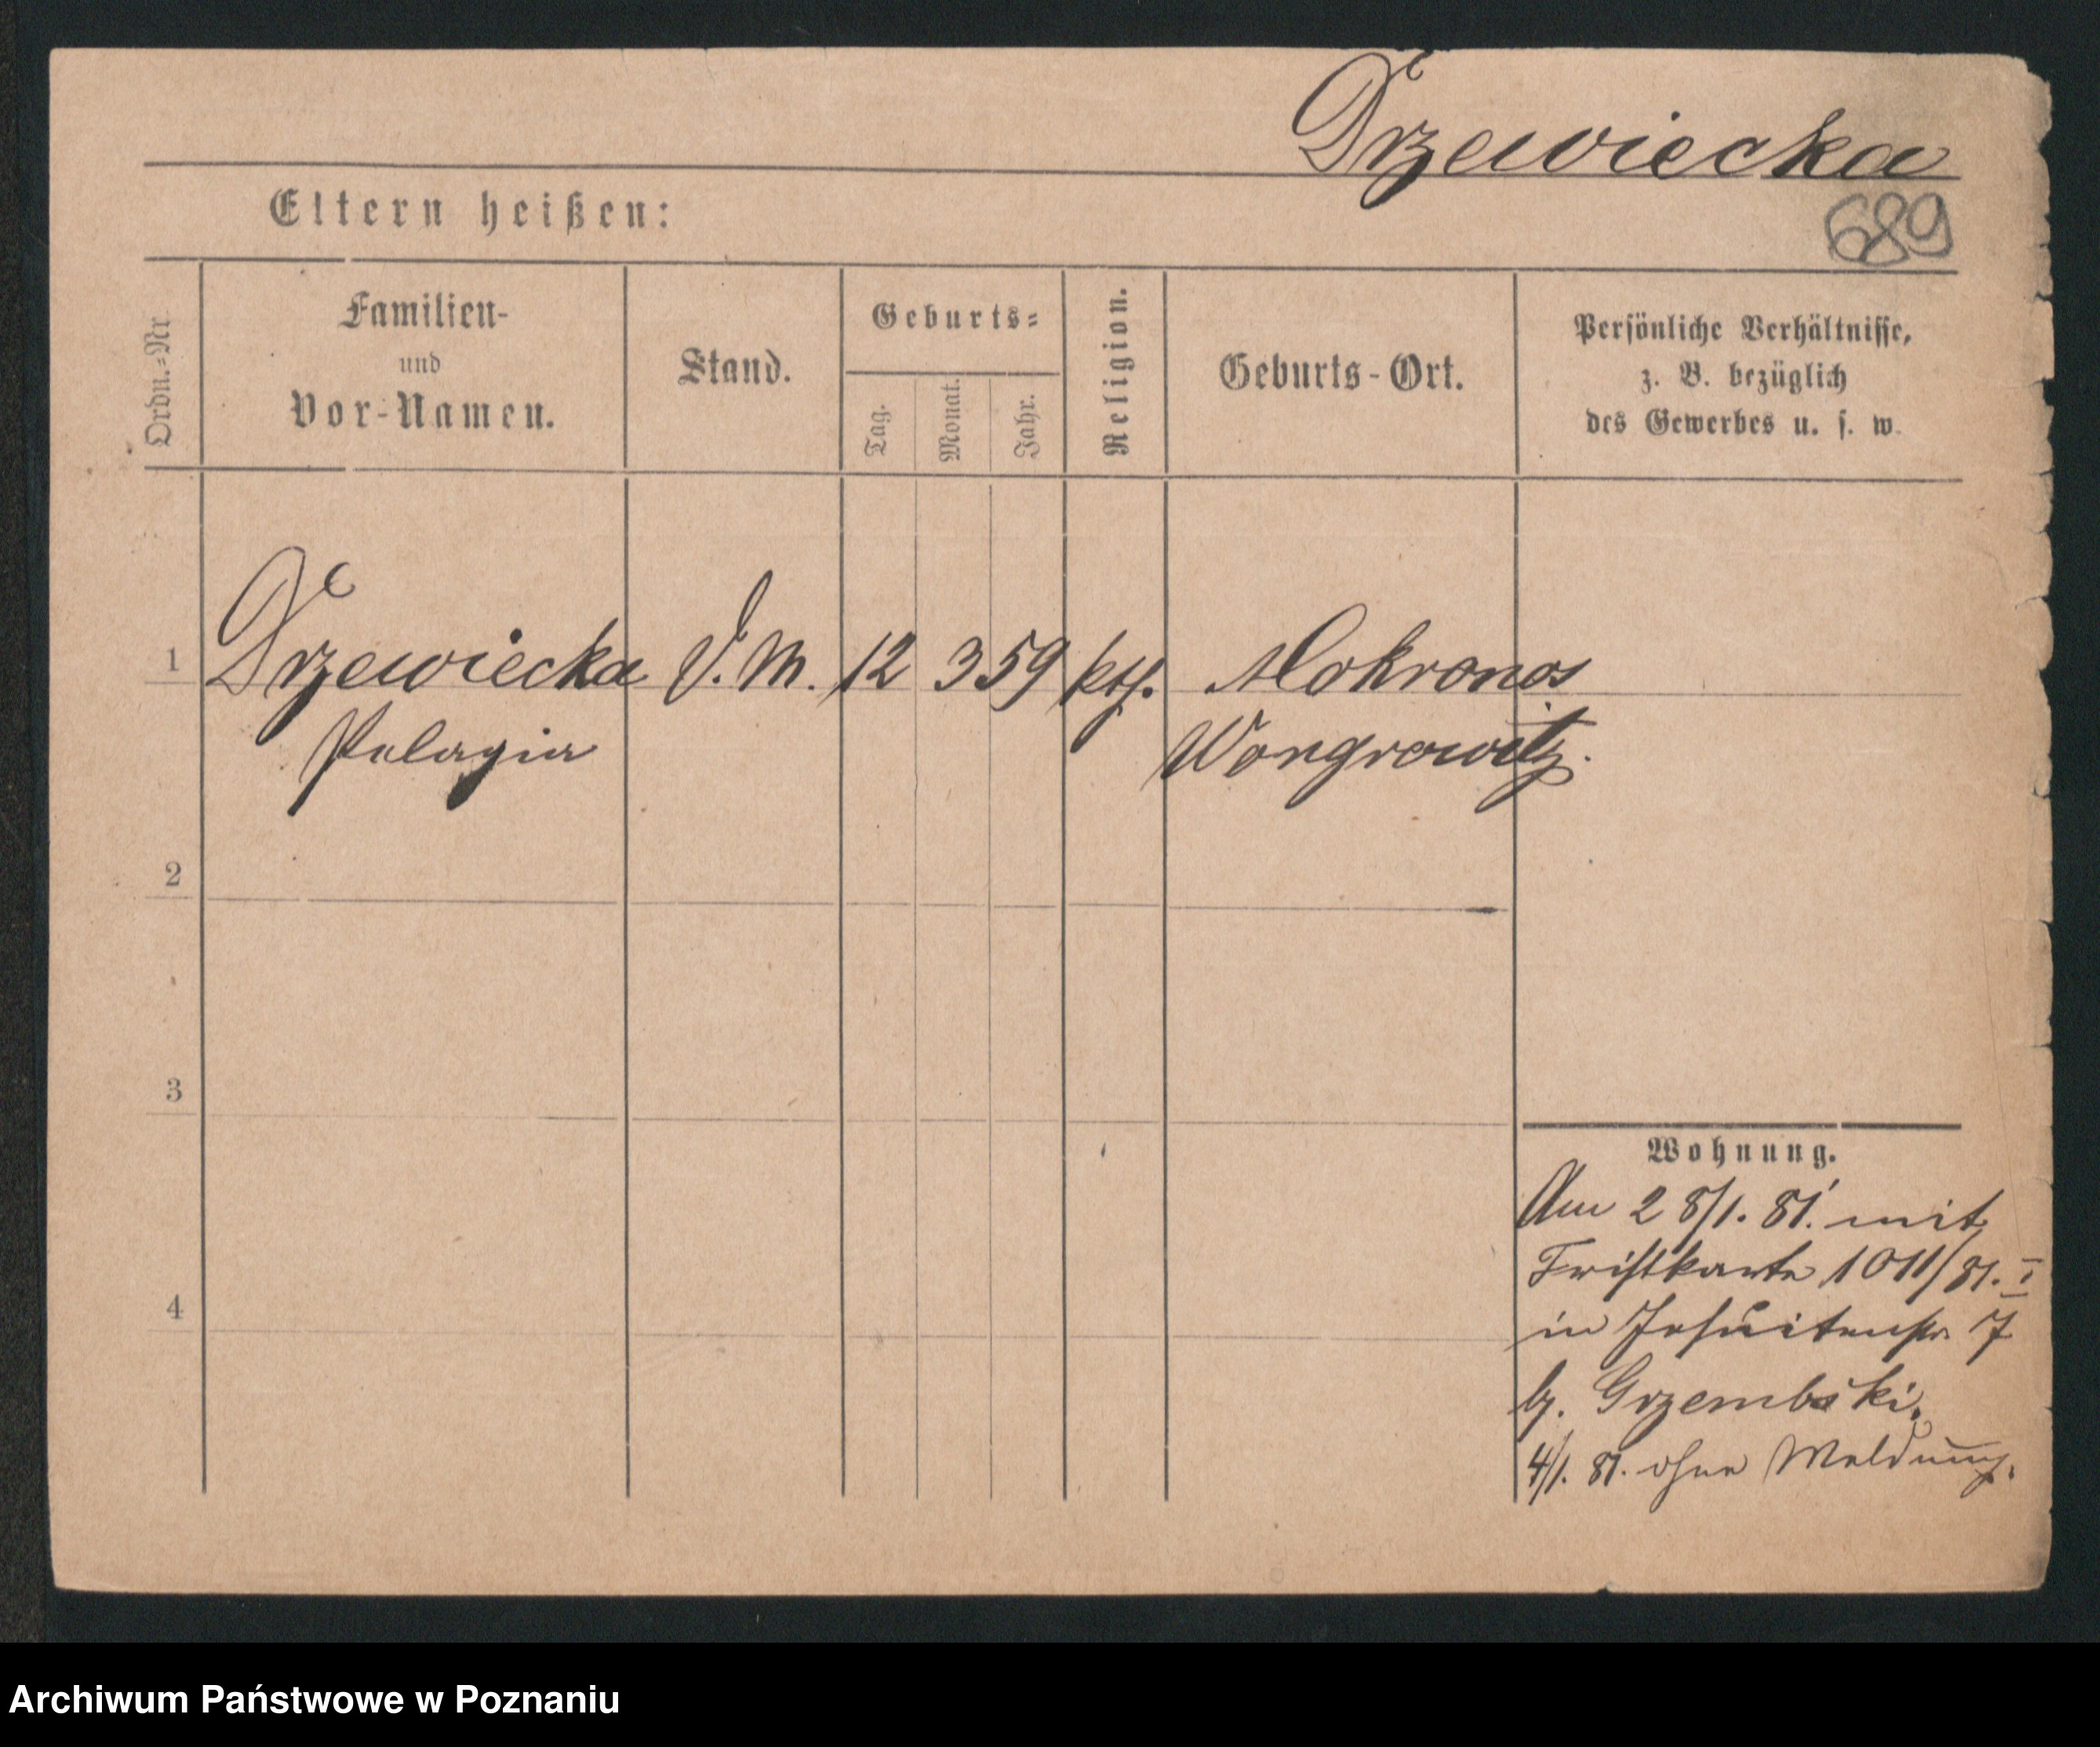 Drzewiecka
689
Eltern heißen:
Ordn.=Nr.
Familien-
und
Vor-Namen.
Stand.
Geburts=
Tag.
Monat.
Jahr.
Religion.
Geburts-Ort.
Persönliche Verhältnisse,
z. B. bezüglich
des Gewerbes u. s. w.
1 Drzewiecka D. M. 12 3 59 kth. Mokronos
Pelagia Wongrowitz.
2
3
4
Wohnung.
Am 28/1. 81. mit
Fristkarte 1011/81. I
in Jesuitenstr. 7
b. Grzembski.
4/1. 81. ohne Meldung.
Archiwum Państwowe w Poznaniu